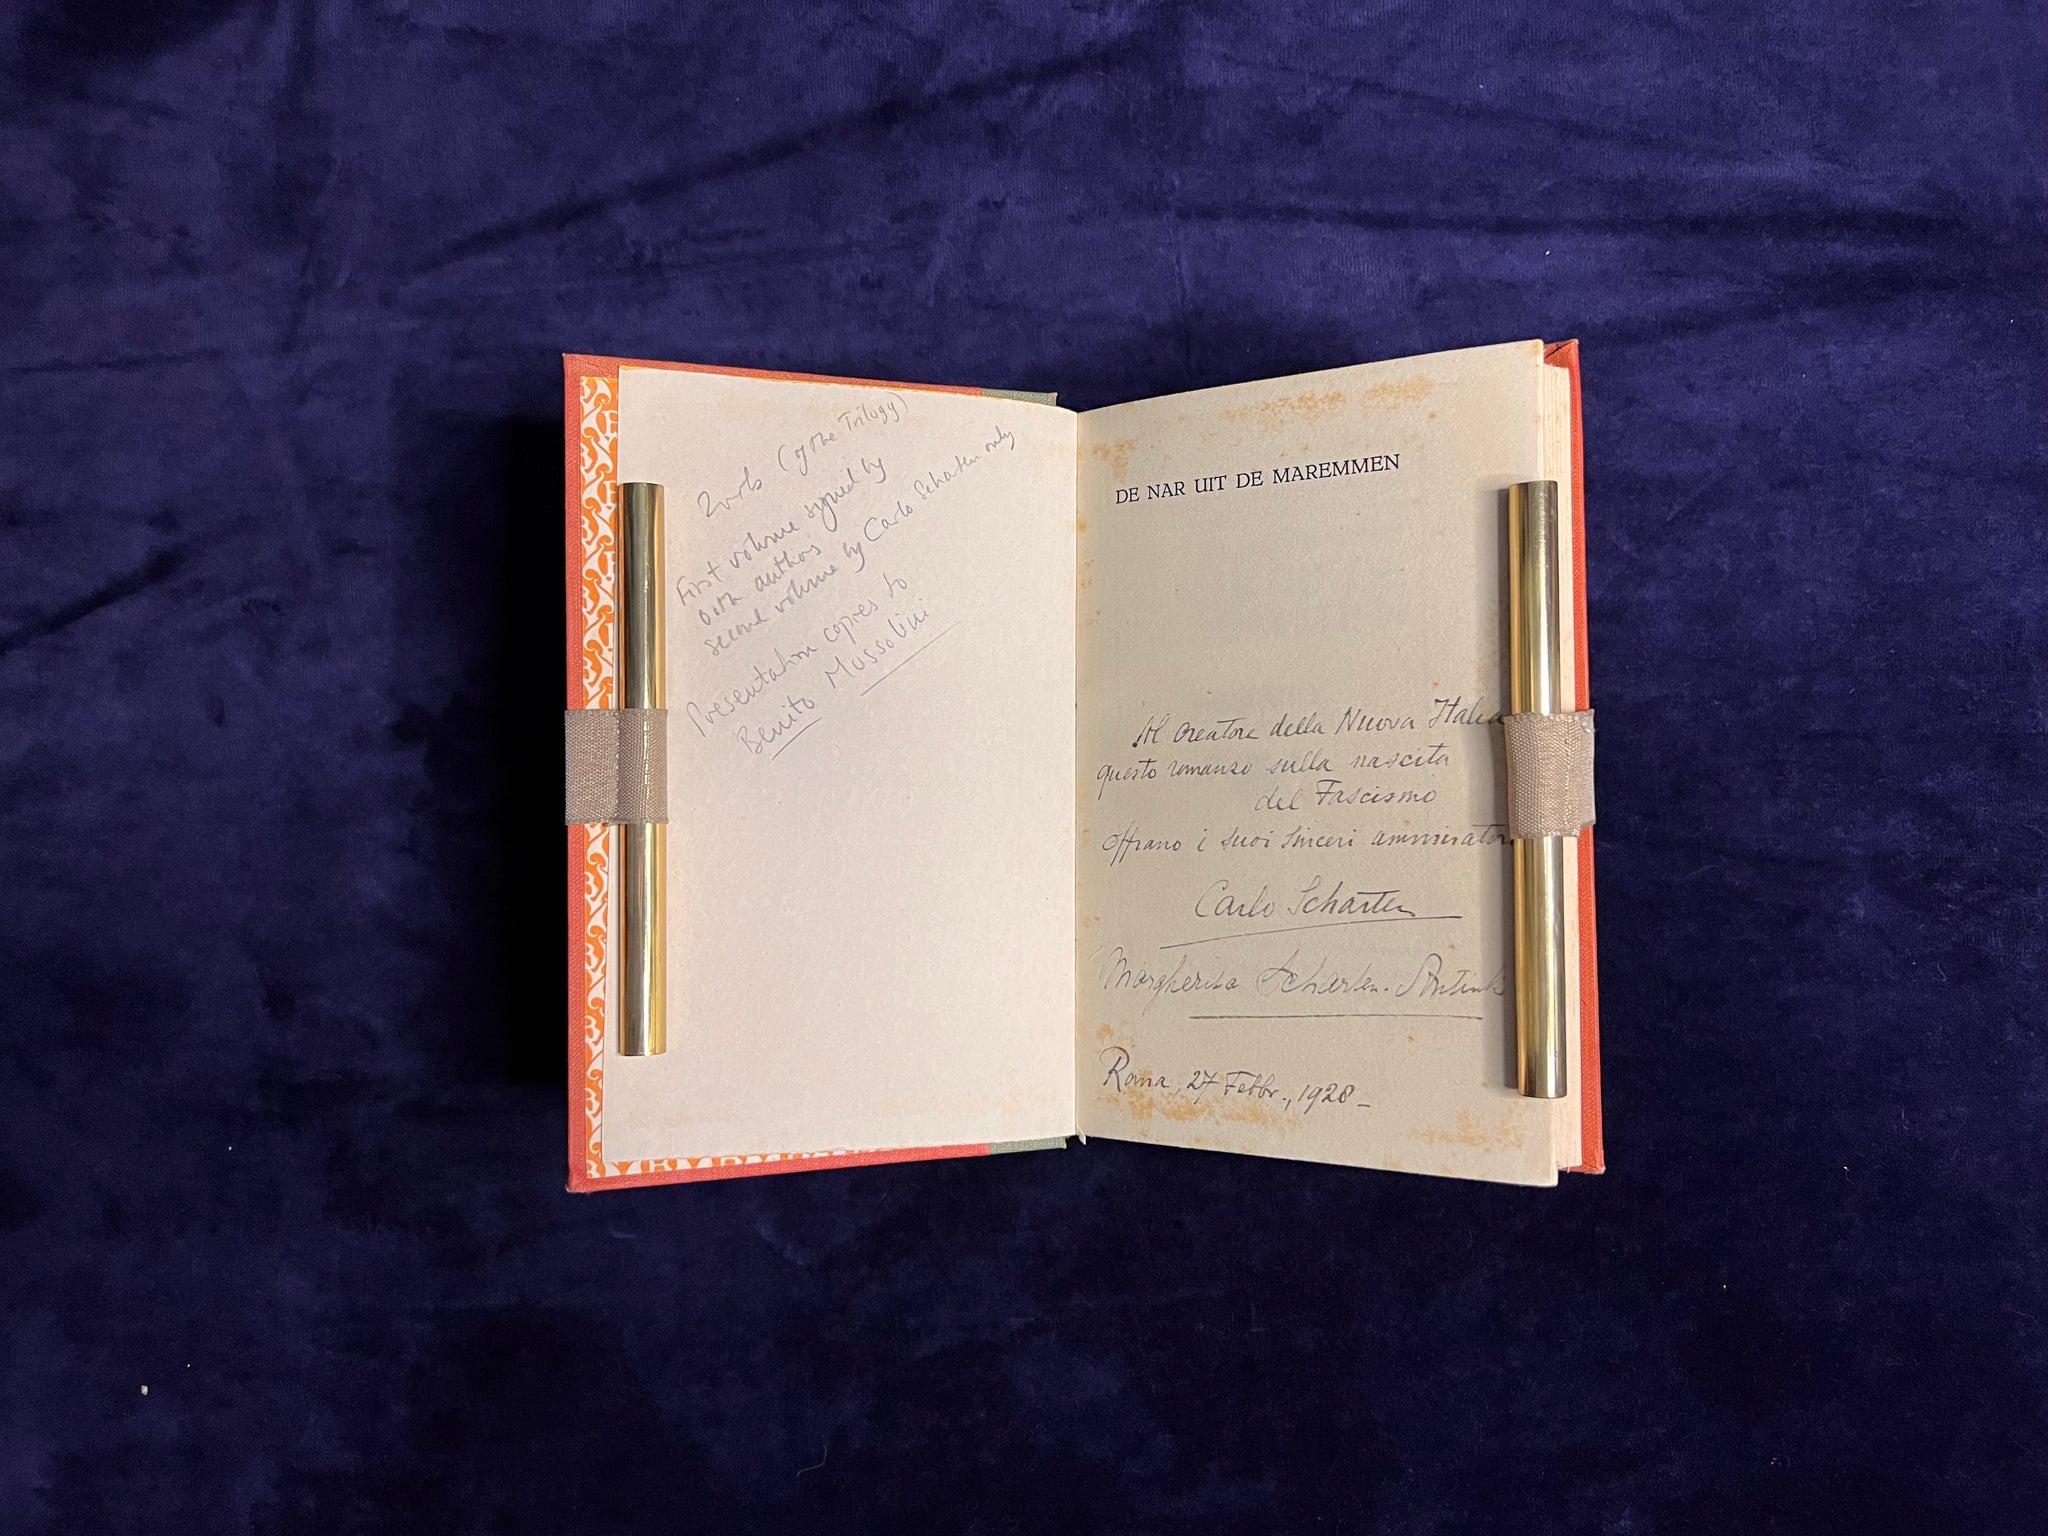 2 vols (of the Trilogy)
First volume signed by
both authors
second volume by Carlo Scharten only
Presentation copies to
Benito Mussolini
DE NAR UIT DE MAREMMEN
Al Creatore della Nuova Italia
questo romanzo sulla nascita
del Fascismo
offrano i suoi sinceri ammiratori
Carlo Scharten
Margherita Scharten-Antink
Roma, 27 Febbr., 1928-